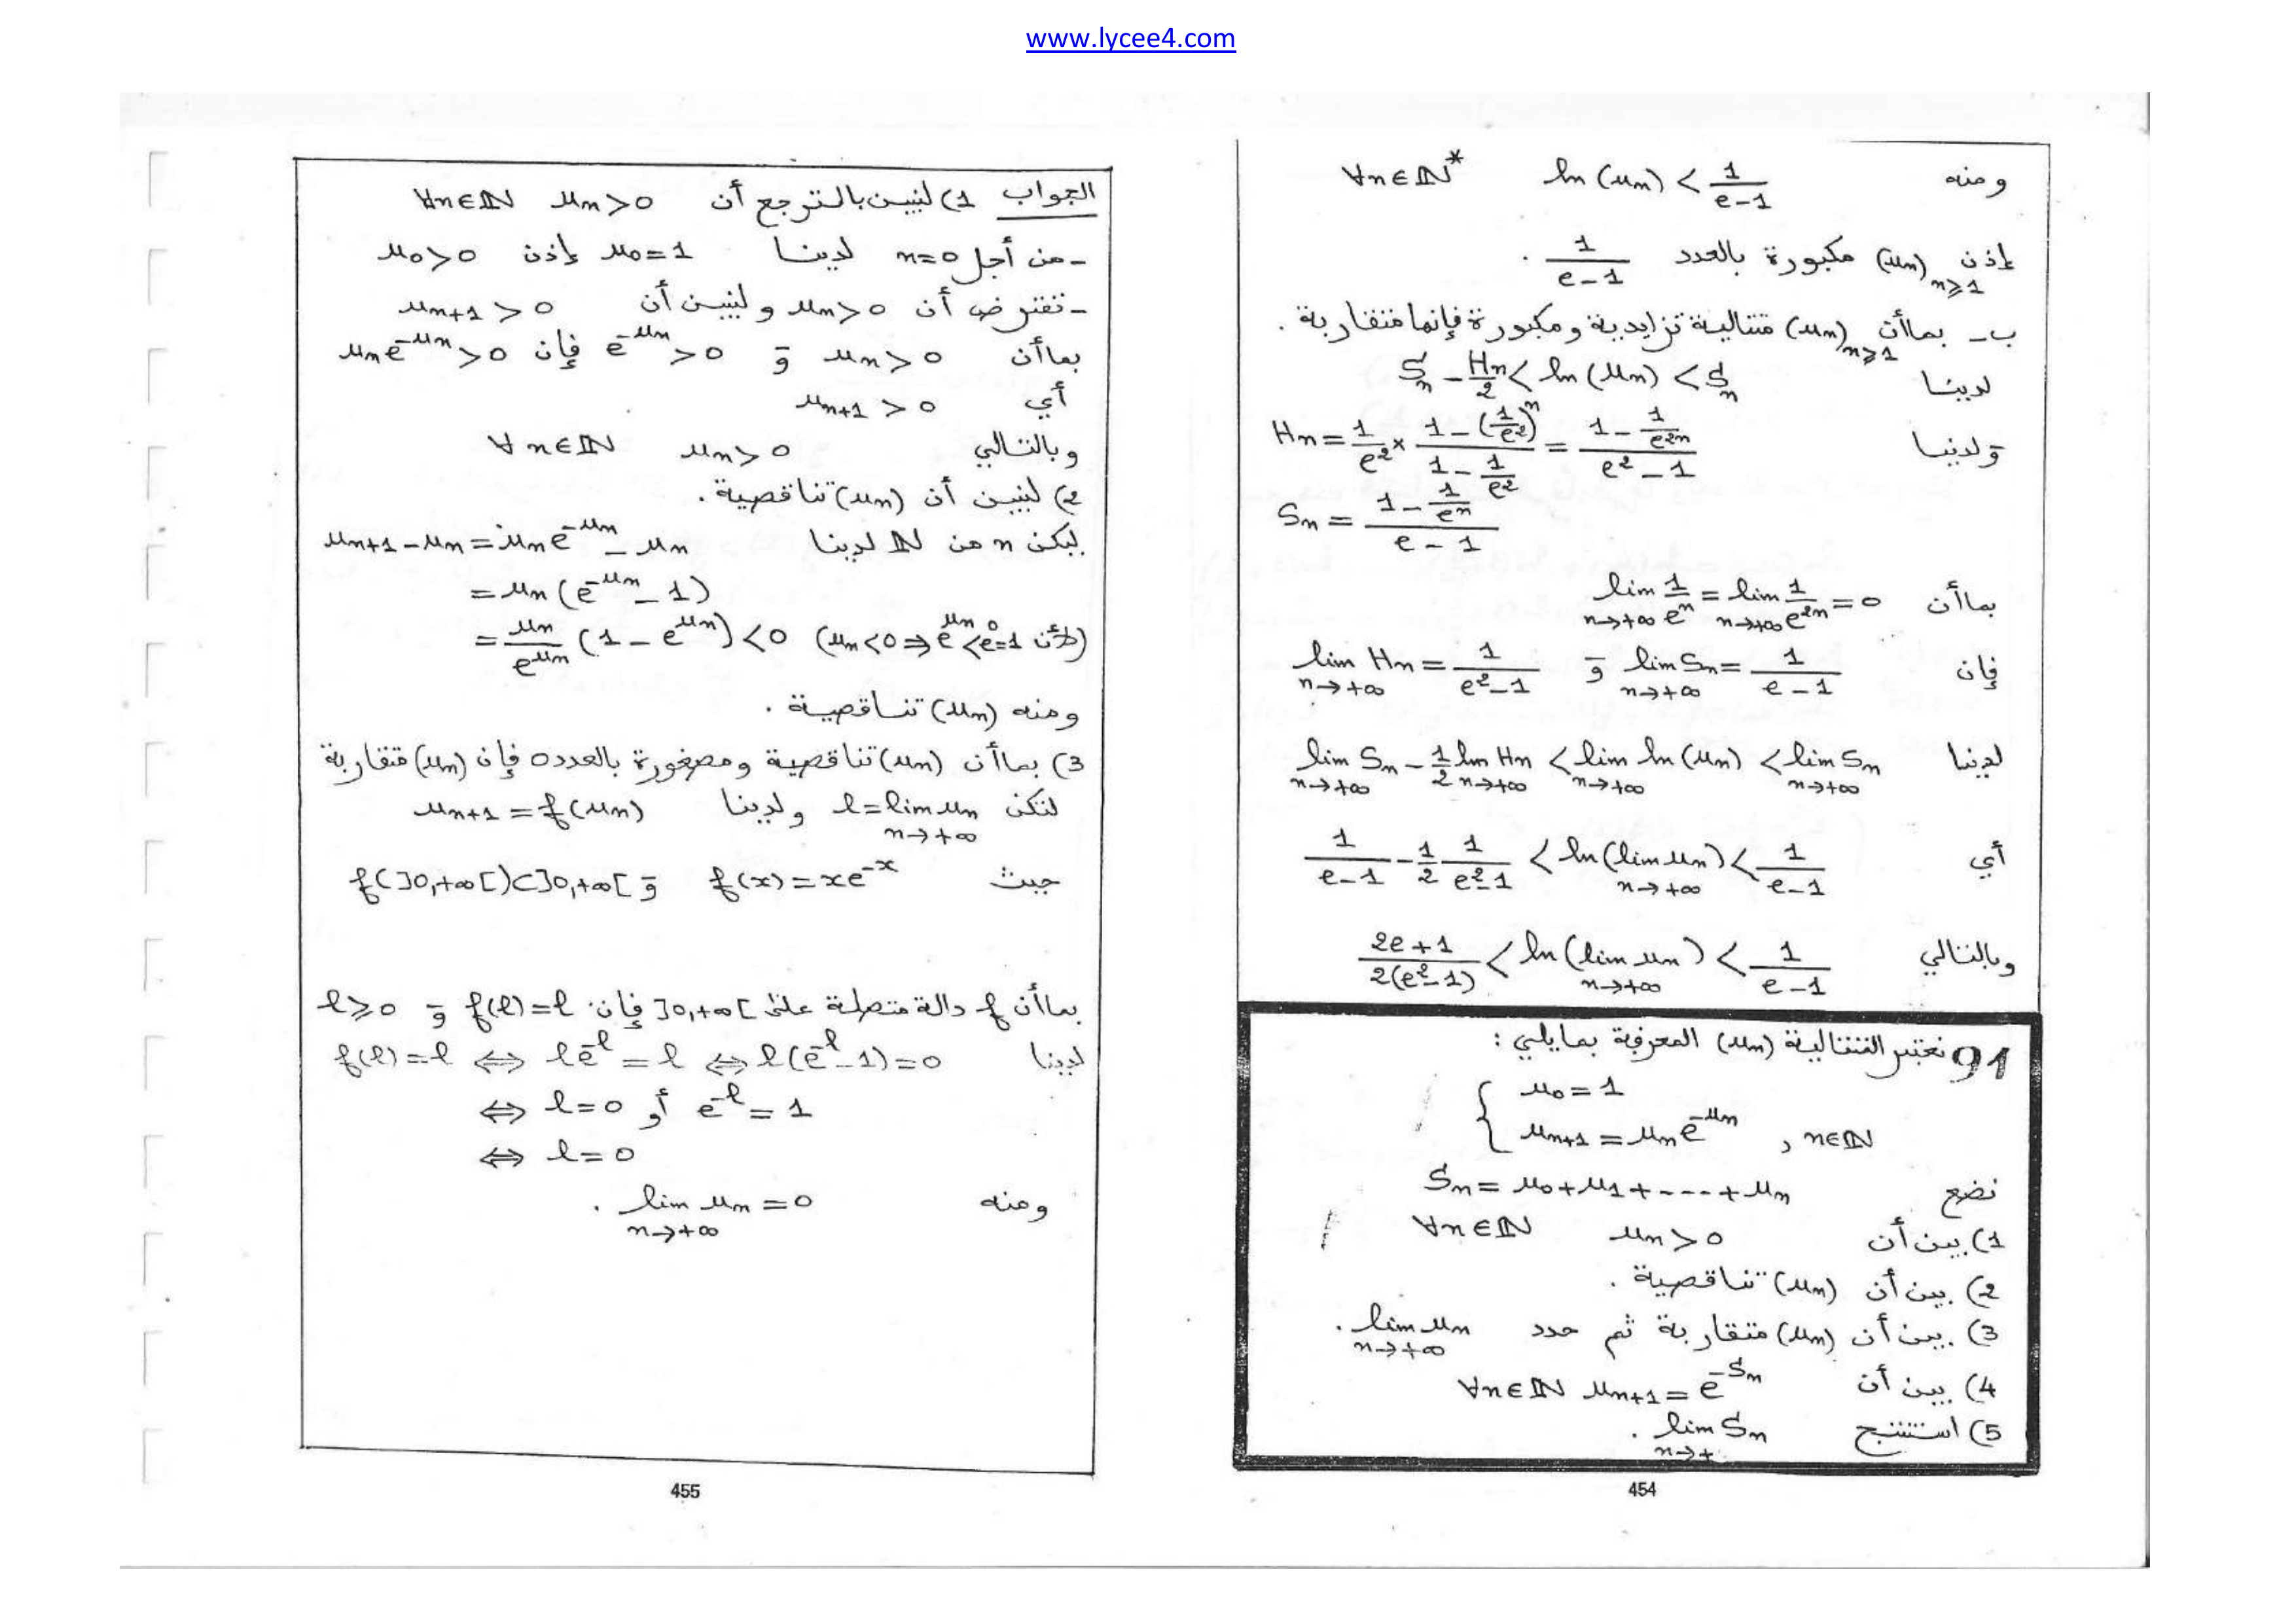 www.lycee4.com
ومنه ln(un) < 1/(e-1) ∀n∈ℕ*
إذن (un)n⩾1 مكبورة بالعدد 1/(e-1) .
ب- بما أن (un)n⩾1 متتالية تزايدية ومكبورة فإنها متقاربة .
لدينا Sn - Hn/2 < ln(un) < Sn
و لدينا Hn = 1/e² × (1-(1/e²)^n)/(1-1/e²) = (1-1/e^2n)/(e²-1)
Sn = (1-1/e^n)/(e-1)
بما أن lim n→+∞ 1/e^n = lim n→+∞ 1/e^2n = 0
فإن lim n→+∞ Sn = 1/(e-1) و lim n→+∞ Hn = 1/(e²-1)
لدينا lim n→+∞ Sn - 1/2 lim n→+∞ Hn < lim n→+∞ ln(un) < lim n→+∞ Sn
أي 1/(e-1) - 1/2 1/(e²-1) < ln(lim n→+∞ un) < 1/(e-1)
وبالتالي (2e+1)/(2(e²-1)) < ln(lim n→+∞ un) < 1/(e-1)
91 نعتبر المتتالية (un) المعرفة بمايلي :
{ u0 = 1
un+1 = un e^-un , n∈ℕ
نضع Sn = u0+u1+----+un
1) بين أن un > 0 ∀n∈ℕ
2) بين أن (un) تناقصية .
3) بين أن (un) متقاربة ثم حدد lim n→+∞ un .
4) بين أن ∀n∈ℕ un+1 = e^-Sn
5) استنتج lim n→+ Sn .
454
الجواب 1) لنبين بالترجع أن un>0 ∀n∈ℕ
- من أجل n=0 لدينا u0=1 إذن u0>0
- نفترض أن un>0 ولنبين أن un+1 > 0
بما أن un > 0 و e^-un > 0 فإن un e^-un > 0
أي un+1 > 0
وبالتالي un > 0 ∀n∈ℕ
2) لنبين أن (un) تناقصية .
ليكن n من ℕ لدينا un+1 - un = un e^-un - un
= un (e^-un - 1)
= un/e^un (1 - e^un) < 0 (لأن un<0 ⇒ e^un < e^0=1)
ومنه (un) تناقصية .
3) بما أن (un) تناقصية ومصغورة بالعدد 0 فإن (un) متقاربة
لتكن l = lim n→+∞ un ولدينا un+1 = f(un)
حيث f(x) = xe^-x و f(]0,+∞[)⊂]0,+∞[
بما أن f دالة متصلة على ]0,+∞[ فإن f(l)=l و l⩾0
لدينا f(l)=l ⇔ le^-l = l ⇔ l(e^-l - 1)=0
⇔ l=0 أو e^-l = 1
⇔ l=0
ومنه lim n→+∞ un = 0 .
455